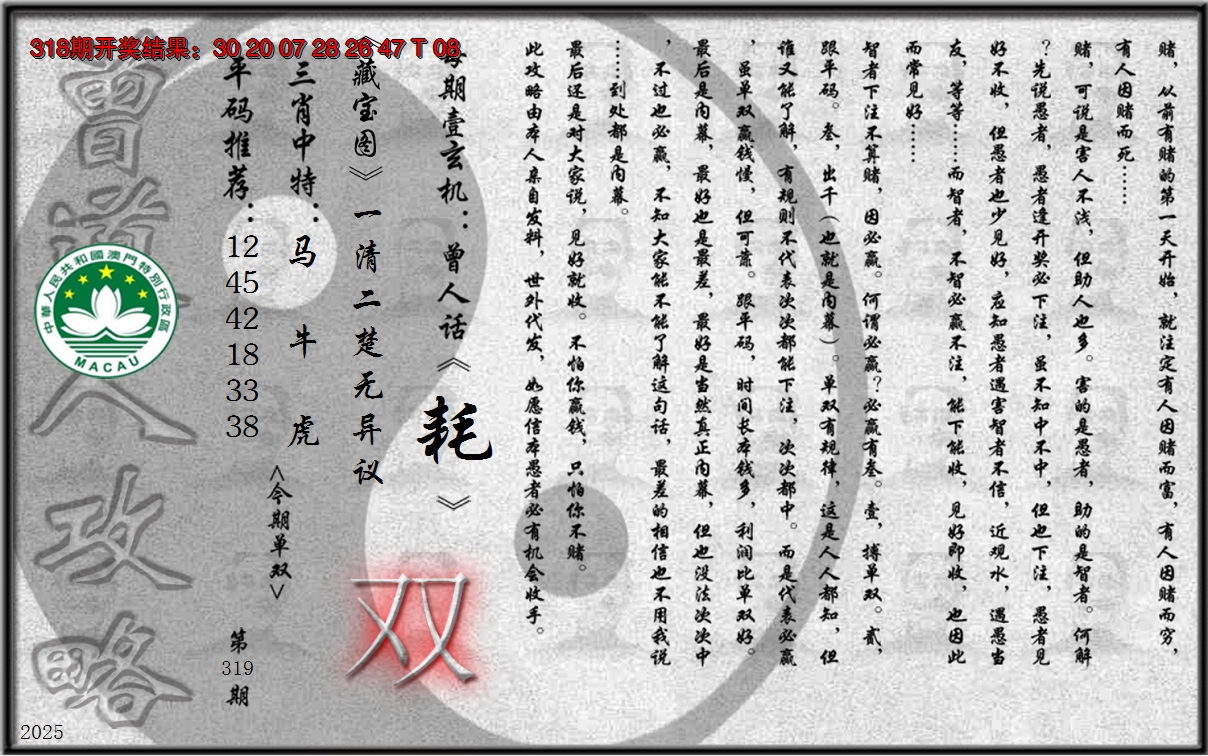 318期开奖结果：30 20 07 28 26 47 T 08
赌，从前有赌的第一天开始，就注定有人因赌而富，有人因赌而穷，
有人因赌而死……
赌，可说是害人不浅，但助人也多。害的是愚者，助的是智者。何解
？先说愚者，愚者逢开奖必下注，虽不知中不中，但也下注，愚者见
好不收，但愚者也少见好，应知愚者遇害智者不信，近观水，遇愚当
友，等等……而智者，不智必赢不注，能下能收，见好即收，也因此
而常见好……
智者下注不算赌，因必赢。何谓必赢？必赢有叁。壹，搏单双。贰，
跟平码。叁，出千（也就是内幕）。单双有规律，这是人人都知，但
谁又能了解，有规则不代表次次都能下注，次次都中。而是代表必赢
，虽单双赢钱慢，但可靠。跟平码，时间长本钱多，利润比单双好。
最后是内幕，最好也是最差，最好是当然真正内幕，但也没法次次中
，不过也必赢，不知大家能不能了解这句话，最差的相信也不用我说
……到处都是内幕。
最后还是对大家说，见好就收。不怕你赢钱，只怕你不赌。
此攻略由本人亲自发料，世外代发，如愿信本愚者必有机会收手。
每期壹玄机：曾人话《耗》
《藏宝图》一清二楚无异议
双
三肖中特：马 牛 虎
<今期单双>
平码推荐：12 45 42 18 33 38
第319期
曾道人攻略
中華人民共和國澳門特別行政區
MACAU
2025